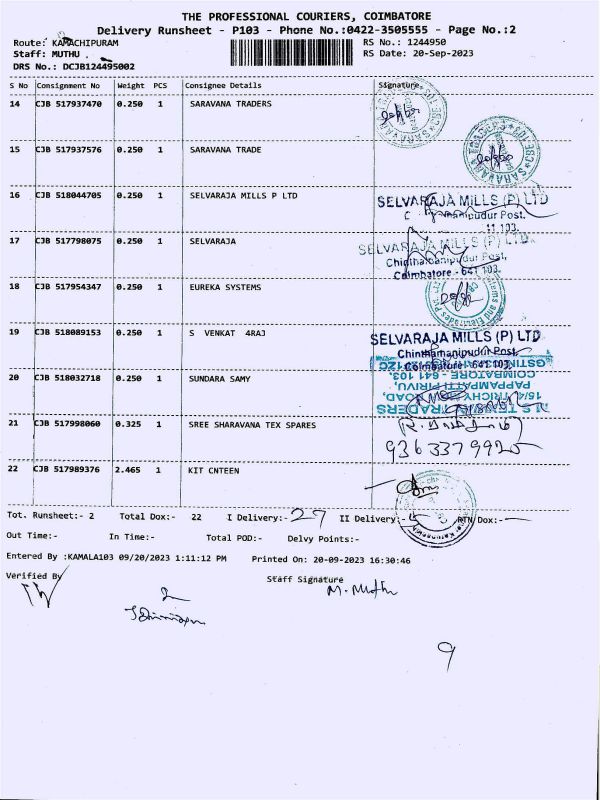 THE PROFESSIONAL COURIERS, COIMBATORE
Delivery Runsheet - P103 - Phone No.:0422-3505555 - Page No.:2
Route: KAMACHIPURAM
RS No.: 1244950
Staff: MUTHU .
RS Date: 20-Sep-2023
DRS No.: DCJB124495002
S No Consignment No Weight PCS Consignee Details Signature
14 CJB 517937470 0.250 1 SARAVANA TRADERS
15 CJB 517937576 0.250 1 SARAVANA TRADE
16 CJB 518044705 0.250 1 SELVARAJA MILLS P LTD
SELVARAJA MILLS (P) LTD
17 CJB 517798075 0.250 1 SELVARAJA
SELVARAJA MILLS (P) LTD.
Chinthamanipudur Post,
Coimbatore - 641 103.
18 CJB 517954347 0.250 1 EUREKA SYSTEMS
19 CJB 518089153 0.250 1 S VENKAT 4RAJ
SELVARAJA MILLS (P) LTD
Chinthamanipudur Post,
Coimbatore - 641 103.
20 CJB 518032718 0.250 1 SUNDARA SAMY
COIMBATORE - 641 103.
PAPPAMPATTI PIRIVU,
15/4, TRICHY ROAD,
TRADERS
21 CJB 517998060 0.325 1 SREE SHARAVANA TEX SPARES
9363379925
22 CJB 517989376 2.465 1 KIT CNTEEN
Tot. Runsheet:- 2 Total Dox:- 22 I Delivery:- 27 II Delivery:- RTN Dox:-
Out Time:- In Time:- Total POD:- Delvy Points:-
Entered By :KAMALA103 09/20/2023 1:11:12 PM Printed On: 20-09-2023 16:30:46
Verified By
Staff Signature
M. Muthu
9